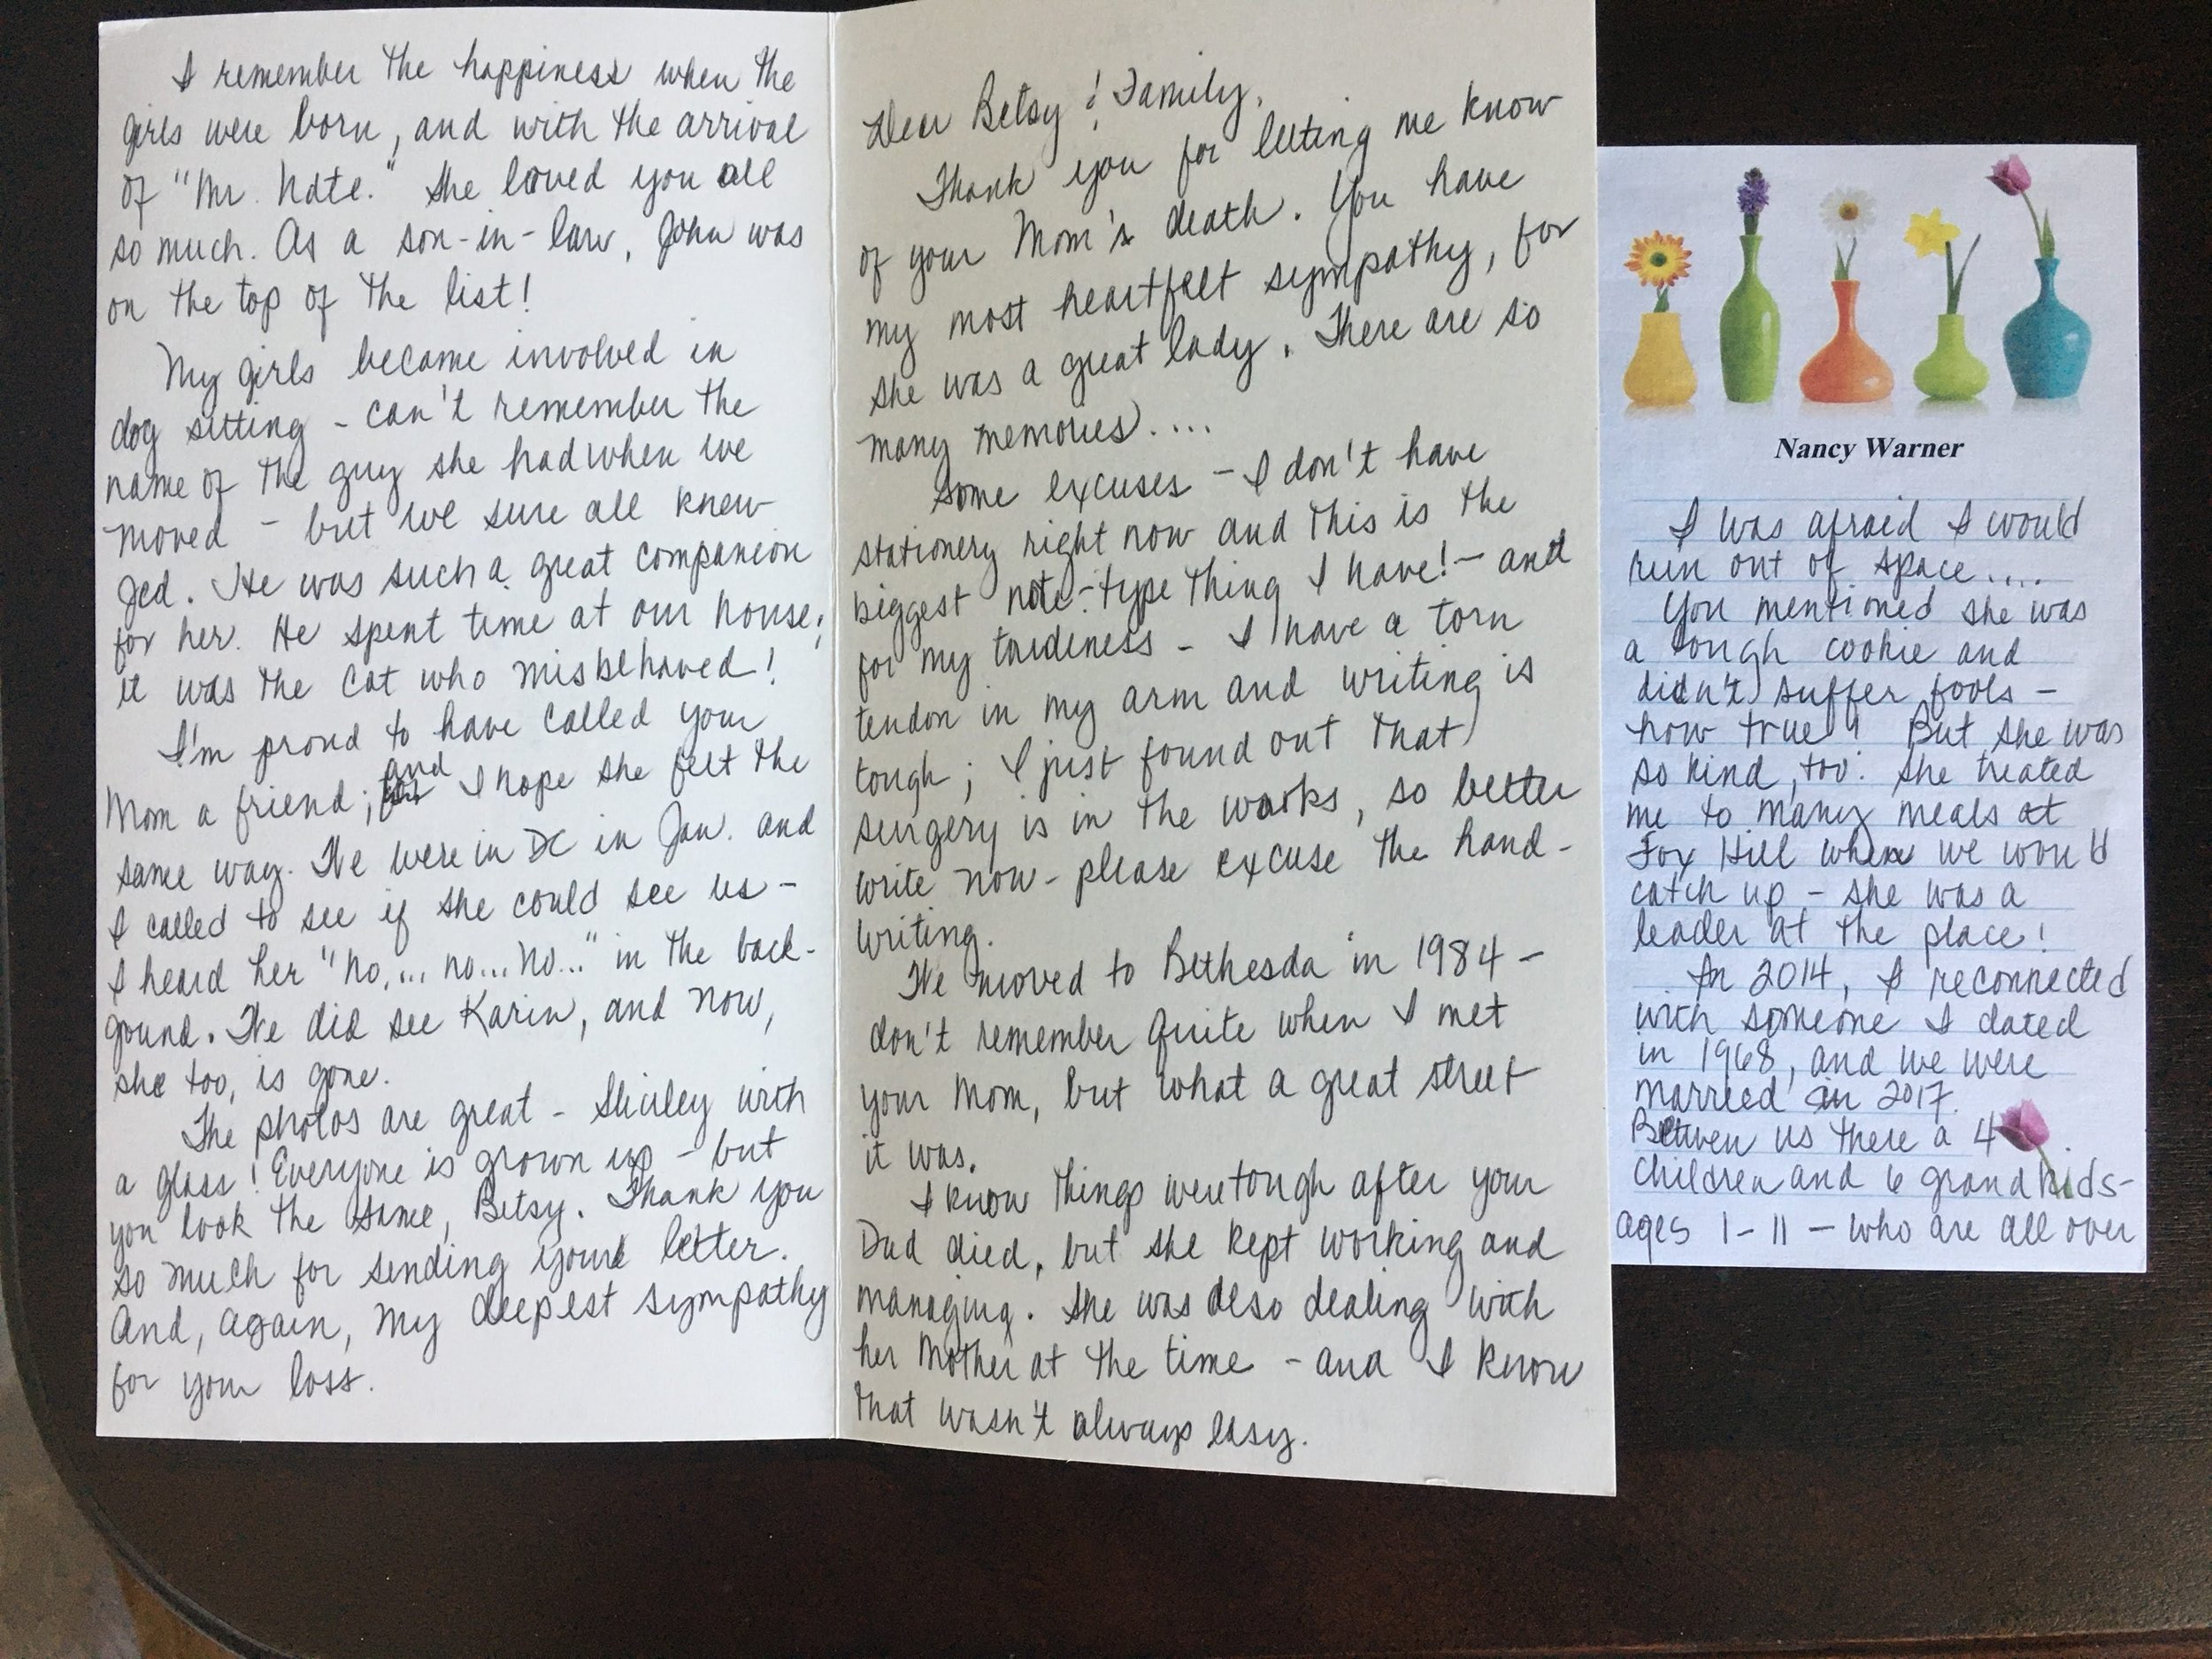 I remember the happiness when the
girls were born, and with the arrival
of "Mr. Nate." She loved you all
so much. As a son-in-law, John was
on the top of the list!
My girls became involved in
dog sitting - can't remember the
name of the guy she had when we
moved - but we sure all knew
Jed. He was such a great companion
for her. He spent time at our house;
it was the cat who misbehaved!
I'm proud to have called your
Mom a friend; and I hope she felt the
same way. We were in DC in Jan. and
I called to see if she could see us -
I heard her "no,... no... no..." in the back-
gound. We did see Karin, and now,
she too, is gone.
The photos are great - Shirley with
a glass! Everyone is grown up - but
you look the same, Betsy. Thank you
so much for sending your letter.
And, again, my deepest sympathy
for your loss.
Dear Betsy & Family,
Thank you for letting me know
of your Mom's death. You have
my most heartfelt sympathy, for
she was a great lady. There are so
many memories....
Some excuses - I don't have
stationery right now and this is the
biggest note-type thing I have! - and
for my tardiness - I have a torn
tendon in my arm and writing is
tough; I just found out that
surgery is in the works, so better
write now - please excuse the hand-
writing.
We moved to Bethesda in 1984 -
don't remember quite when I met
your Mom, but what a great street
it was.
I know things were tough after your
Dad died, but she kept working and
managing. She was also dealing with
her Mother at the time - and I know
that wasn't always easy.
Nancy Warner
I was afraid I would
run out of space....
You mentioned she was
a tough cookie and
didn't suffer fools -
how true! But she was
so kind, too. She treated
me to many meals at
Fox Hill when we would
catch up - she was a
leader at the place!
In 2014, I reconnected
with someone I dated
in 1968, and we were
married in 2017.
Between us there a 4
children and 6 grandkids-
ages 1-11 - who are all over